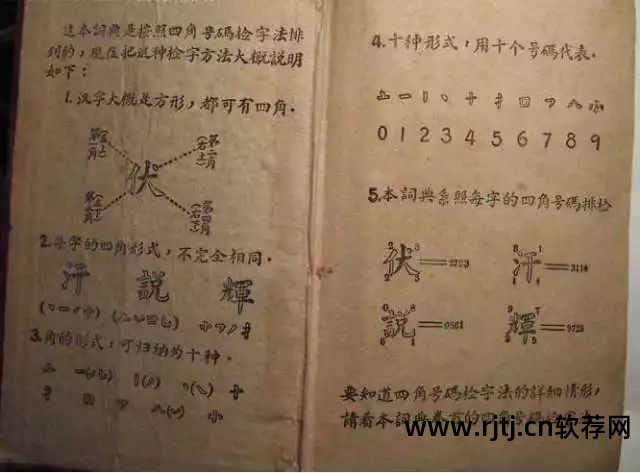 这本詞典是按照四角号碼检字法排
列的，現在把这种检字方法大概説明
如下：
1.汉字大概是方形，都可有四角．
第一角
（左上）
第二角
（右上）
伏
第三角
（左下）
第四角
（右下）
2.每字的四角形式，不完全相同．
汗 説 輝
3.角的形式，可归纳为十种．
4.十种形式，用十个号碼代表．
0 1 2 3 4 5 6 7 8 9
5.本詞典系照每字的四角号碼排
伏 汗 3114
説 輝
要知道四角号碼检字法的詳細情形，
請看本詞典卷首的四角号碼
www.rjtj.cn软荐网